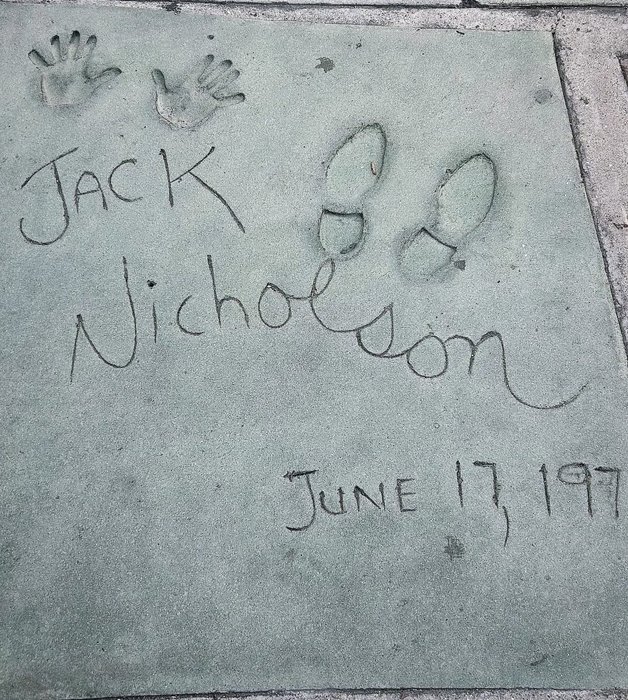 JACK
Nicholson
JUNE 17, 197